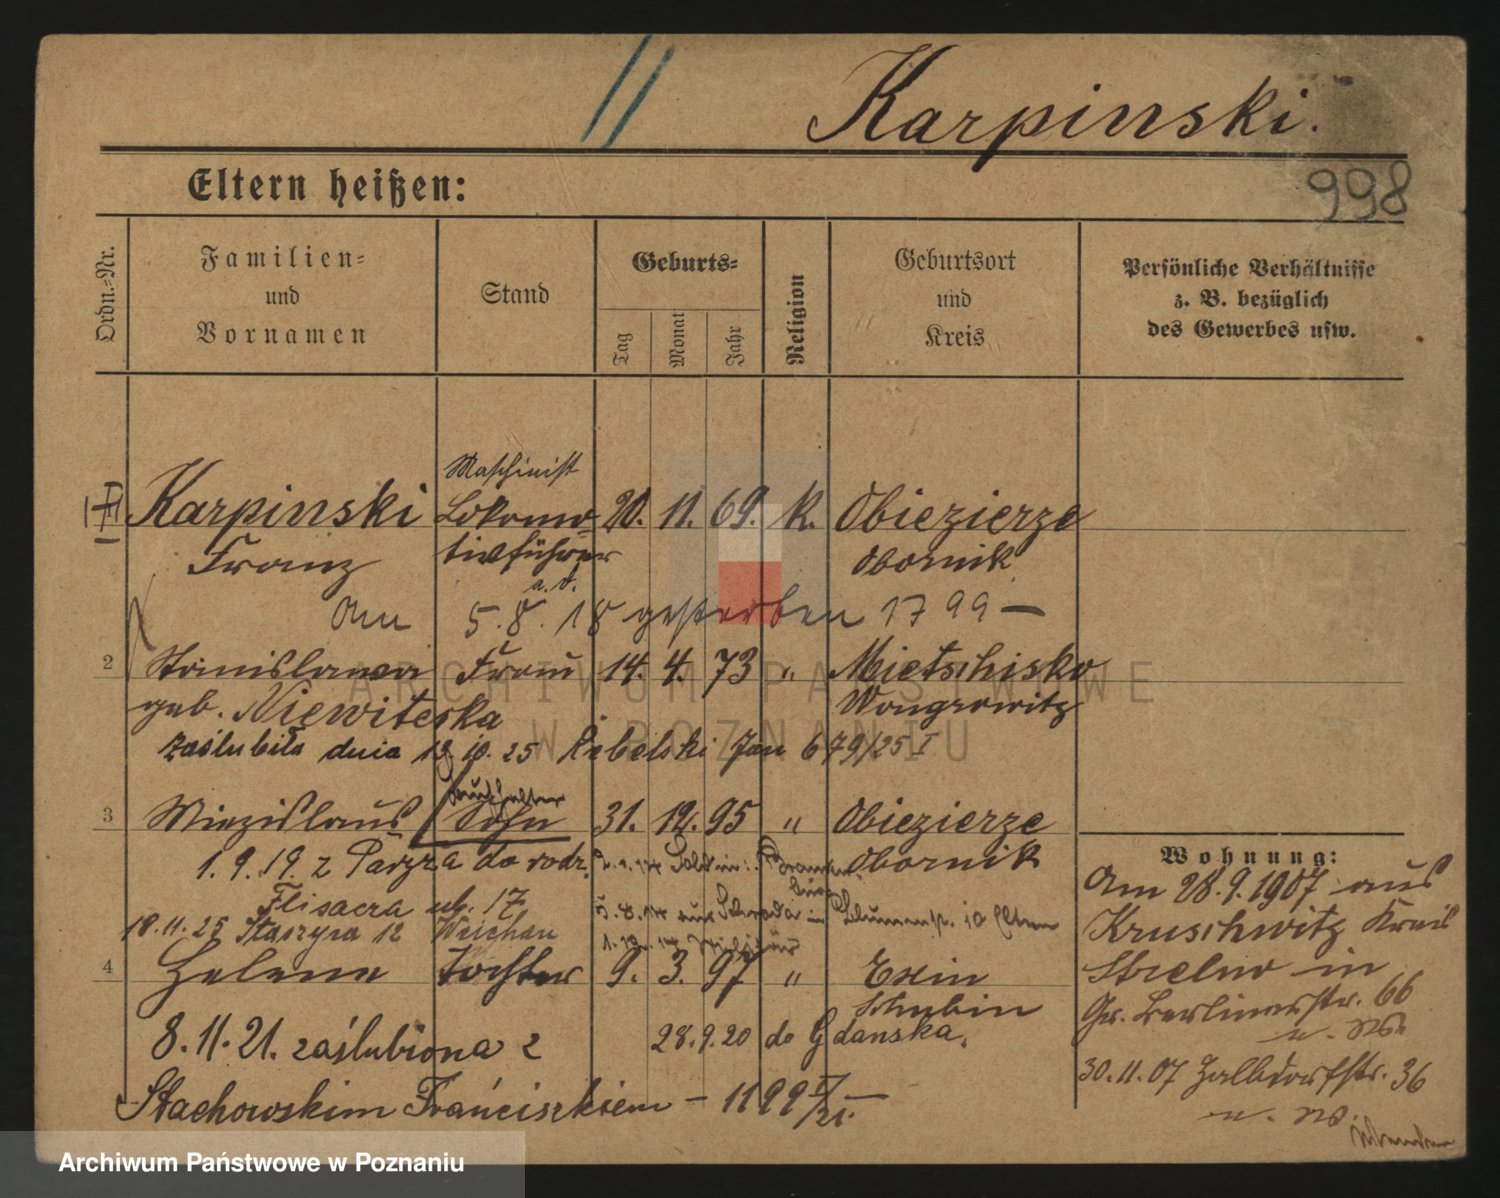 Karpinski.
998
Eltern heißen:
Ordn.-Nr.
Familien-
und
Vornamen
Stand
Geburts-
Tag
Monat
Jahr
Religion
Geburtsort
und
Kreis
Persönliche Verhältnisse
z. B. bezüglich
des Gewerbes usw.
Maschinist
Karpinski Lokomo- 20. 11. 69. K. Obiezierze
Franz tivführer Obornik
a. d.
Am 5. 8. 18 gestorben 1799 —
2 Stanislawa Frau 14. 4. 73 " Mietschisko
geb. Niewitecka Wongrowitz
zaślubiła dnia 13. 10. 25 Jan 679/25 I
3 Miezislaus Sohn 31. 12. 95 " Obiezierze
Obornik
1. 9. 19. z do rodz.
Flisacra 17
18. 11. 25 Staszyca 12
4 Helene Tochter 9. 3. 97 " Exin
Schubin
8. 11. 21. zaślubiona z
28. 9. 20 do Gdańska.
Stachowskim Franciszkiem — 1199 I/21. —
Wohnung:
Am 28. 9. 1907 aus
Kruschwitz Kreis
Strelno in
Gr. Berlinerstr. 66
30. 11. 07 36
ARCHIWUM PAŃSTWOWE
W POZNANIU
Archiwum Państwowe w Poznaniu